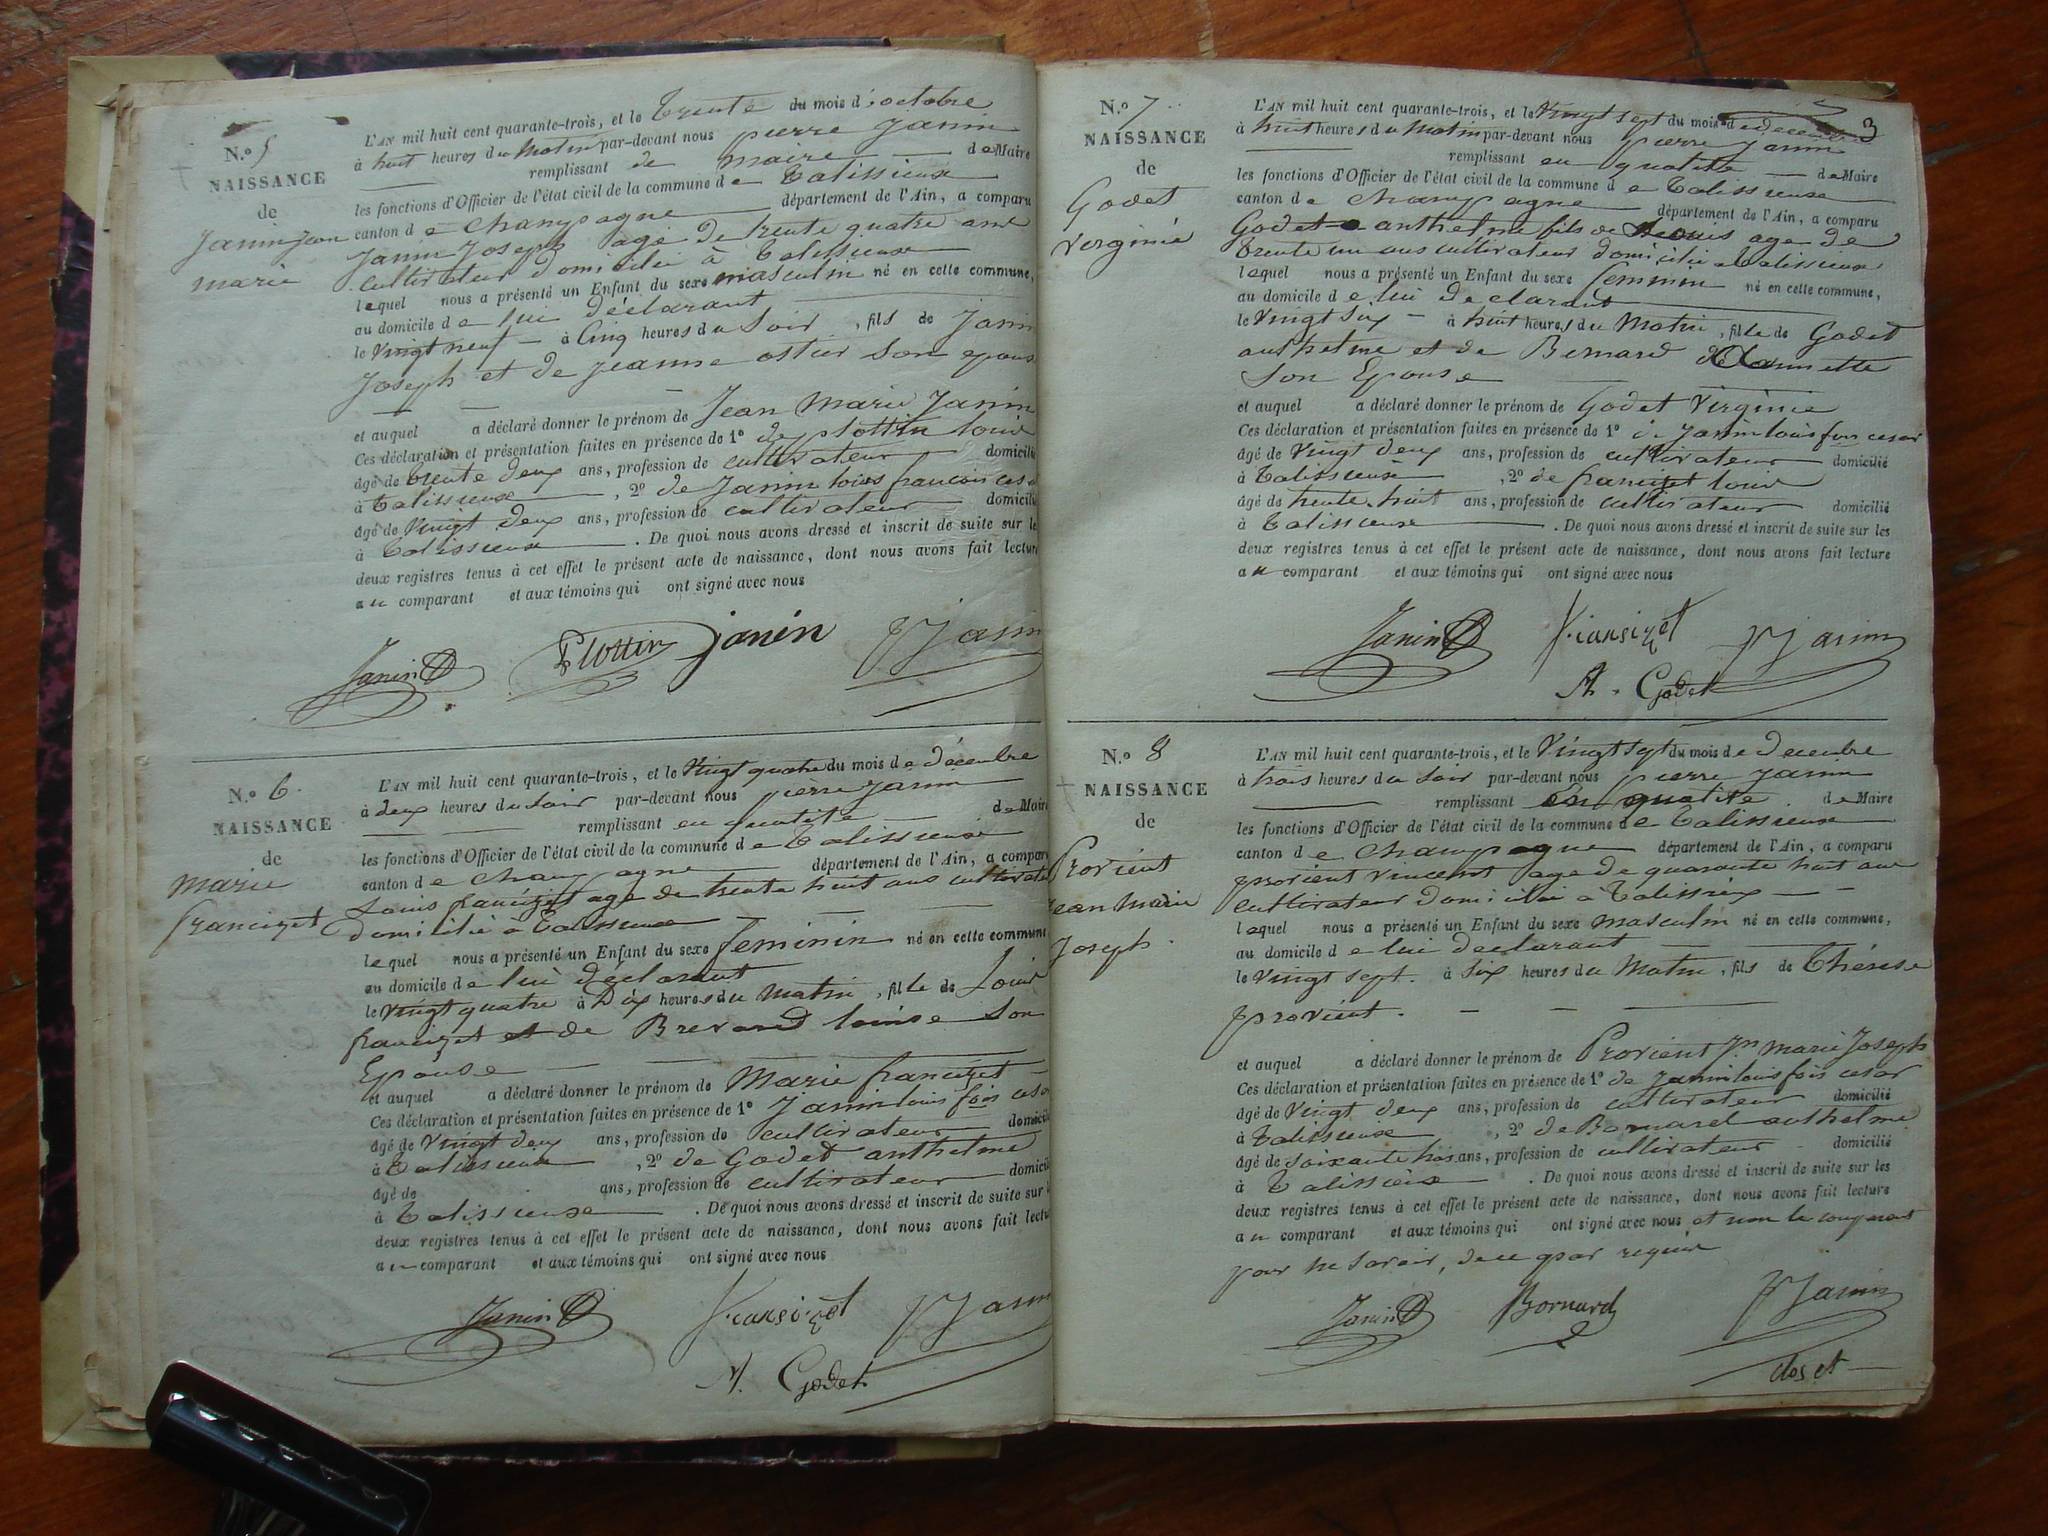 N.º 5
NAISSANCE
de
Janin Jean
marie
L'AN mil huit cent quarante-trois, et le trente du mois d'octobre
à huit heures du Matin par-devant nous pierre Janin
remplissant de maire de Maire
les fonctions d'Officier de l'état civil de la commune de talissieux
canton de champagne département de l'Ain, a comparu
Janin Joseph agé de trente quatre ans
cultivateur domicilié à talissieux
lequel nous a présenté un Enfant du sexe masculin né en cette commune,
au domicile de lui déclarant
le Vingt neuf à Cinq heures du Soir, fils de Janin
Joseph et de jeanne ostier son epouse
et auquel a déclaré donner le prénom de Jean Marie Janin
Ces déclaration et présentation faites en présence de 1º de plottin louis
âgé de trente deux ans, profession de cultivateur domicilié
à talissieux, 2º de Janin louis francois cesar
âgé de Vingt deux ans, profession de cultivateur domicilié
à talissieux. De quoi nous avons dressé et inscrit de suite sur les
deux registres tenus à cet effet le présent acte de naissance, dont nous avons fait lecture
au comparant et aux témoins qui ont signé avec nous
Janin Plottin janin PJanin
N.º 6.
NAISSANCE
de
Marie
francizet
L'AN mil huit cent quarante-trois, et le Vingt quatre du mois de décembre
à deux heures du Soir par-devant nous pierre Janin
remplissant en qualité de Maire
les fonctions d'Officier de l'état civil de la commune de talissieux
canton de champagne département de l'Ain, a comparu
Louis francizet age de trente huit ans cultivateur
domicilié à talissieux
lequel nous a présenté un Enfant du sexe feminin né en cette commune,
au domicile de lui declarant
le Vingt quatre à Dix heures du Matin, fille de Louis
francizet et de Brevard louise son
Epouse
et auquel a déclaré donner le prénom de Marie francizet
Ces déclaration et présentation faites en présence de 1º Janin louis fois cesar
âgé de Vingt deux ans, profession de cultivateur domicilié
à talissieux, 2º de Godet anthelme
âgé de ans, profession de cultivateur domicilié
à talissieux. De quoi nous avons dressé et inscrit de suite sur les
deux registres tenus à cet effet le présent acte de naissance, dont nous avons fait lecture
au comparant et aux témoins qui ont signé avec nous
Janin Francizet PJanin
A. Godet
3
N.º 7
NAISSANCE
de
Godet
Verginie
L'AN mil huit cent quarante-trois, et le Vingt sept du mois de decembre
à huit heures du Matin par-devant nous pierre Janin
remplissant en qualité de Maire
les fonctions d'Officier de l'état civil de la commune de talissieux
canton de champagne département de l'Ain, a comparu
Godet anthelme fils de Louis age de
trente un ans cultivateur domicilié a talissieux
lequel nous a présenté un Enfant du sexe feminin né en cette commune,
au domicile de lui declarant
le Vingt six à huit heures du Matin, fille de Godet
anthelme et de Bernard Annette
son Epouse
et auquel a déclaré donner le prénom de Godet Virginie
Ces déclaration et présentation faites en présence de 1º de Janin louis fois cesar
âgé de Vingt deux ans, profession de cultivateur domicilié
à talissieux, 2º de francizet louis
âgé de trente huit ans, profession de cultivateur domicilié
à talissieux. De quoi nous avons dressé et inscrit de suite sur les
deux registres tenus à cet effet le présent acte de naissance, dont nous avons fait lecture
au comparant et aux témoins qui ont signé avec nous
Janin Francizet PJanin
A. Godet
N.º 8
NAISSANCE
de
Provient
Jean Marie
Joseph.
L'AN mil huit cent quarante-trois, et le Vingt sept du mois de decembre
à trois heures du Soir par-devant nous pierre Janin
remplissant En qualité de Maire
les fonctions d'Officier de l'état civil de la commune de talissieux
canton de champagne département de l'Ain, a comparu
provient Vincent age de quarante huit ans
cultivateur domicilié a talissieux
lequel nous a présenté un Enfant du sexe masculin né en cette commune,
au domicile de lui declarant
le Vingt sept. à six heures du Matin, fils de Thérèse
provient.
et auquel a déclaré donner le prénom de Provient Jn Marie Joseph
Ces déclaration et présentation faites en présence de 1º de Janin louis fois cesar
âgé de Vingt deux ans, profession de cultivateur domicilié
à talissieux, 2º de Bornard anthelme
âgé de soixante trois ans, profession de cultivateur domicilié
à talissieux. De quoi nous avons dressé et inscrit de suite sur les
deux registres tenus à cet effet le présent acte de naissance, dont nous avons fait lecture
au comparant et aux témoins qui ont signé avec nous et non le comparant
pour ne savoir, de ce par requis
Janin Bornard PJanin
clos et